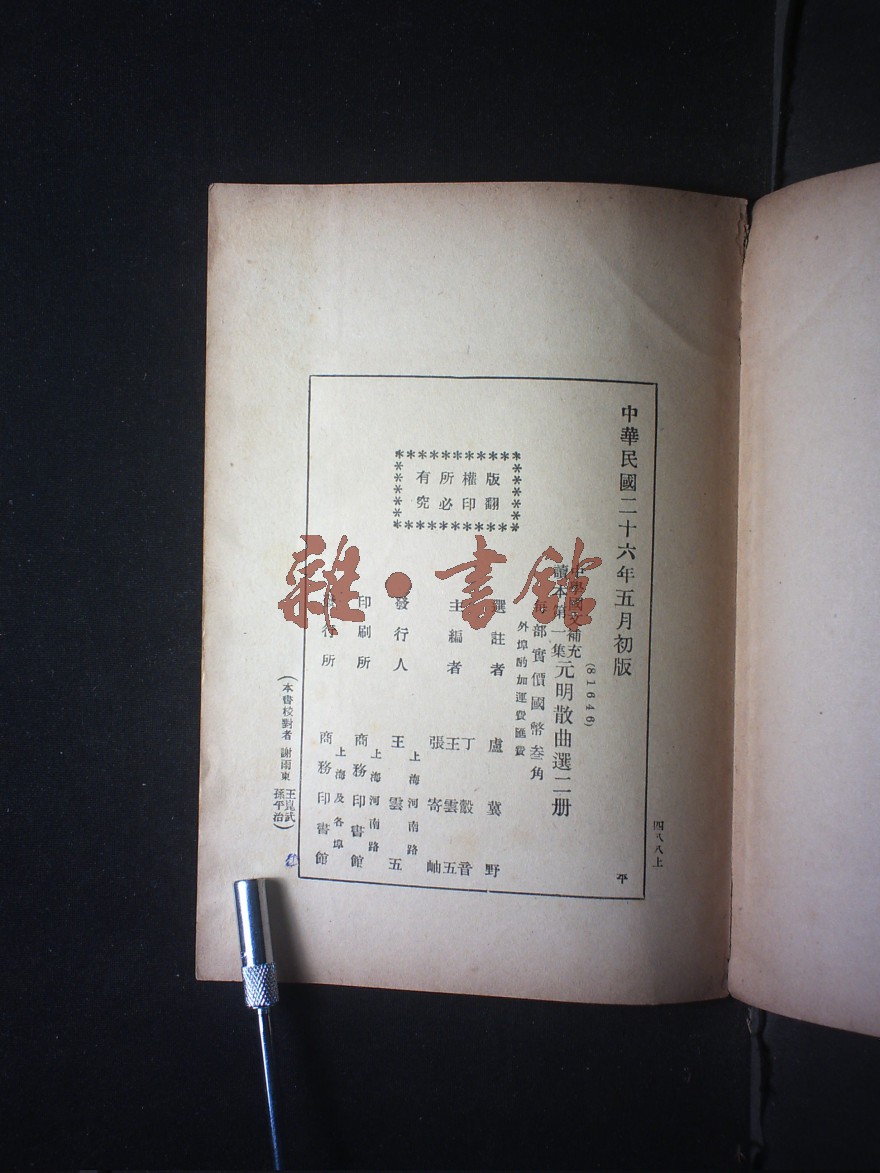 中華民國二十六年五月初版
四八八上
平
(81646)
中學國文補充
讀本第一集
元明散曲選二册
每部實價國幣叁角
外埠酌加運費匯費
版權所有
翻印必究
選註者 盧冀野
主編者
丁瑴音
王雲五
張寄岫
發行人 王雲五
上海河南路
印刷所 商務印書館
上海河南路
發行所 商務印書館
上海及各埠
(本書校對者 謝雨東 王崑武 孫平治)
雜·書館